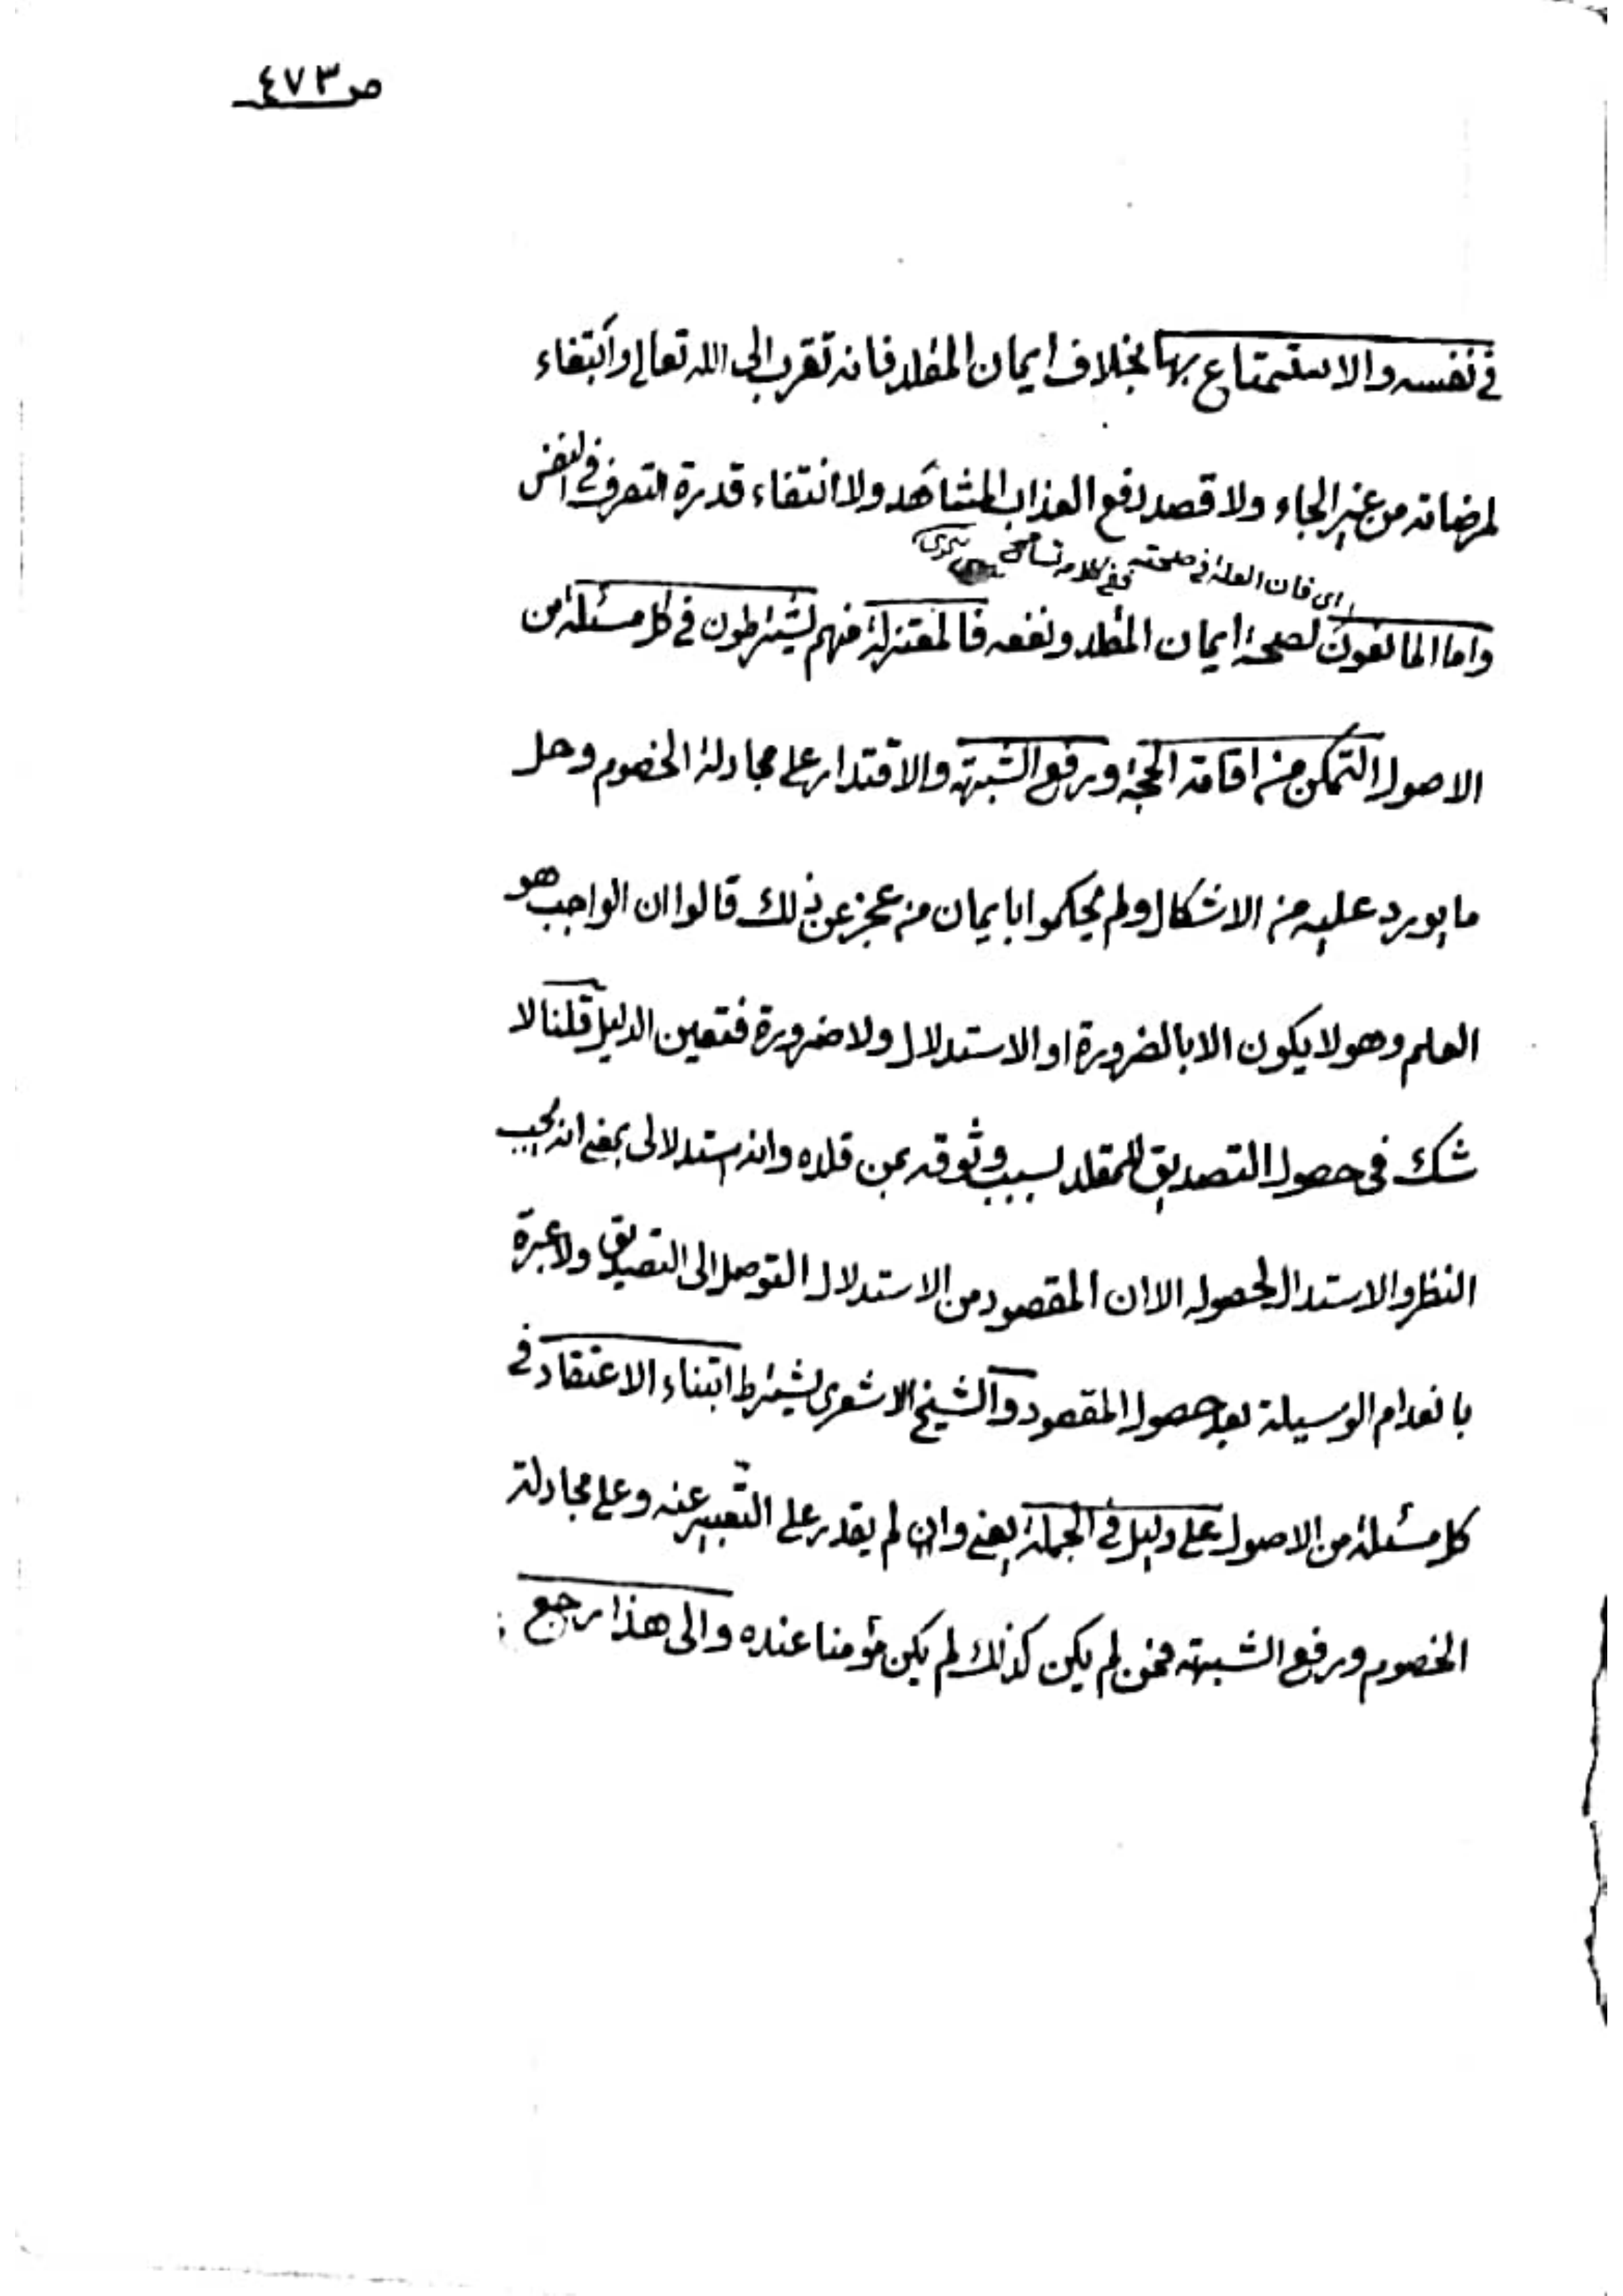 ص ٤٧٣
في نفسه والاستمتاع بها بخلاف ايمان المقلد فانه تقرب الى الله تعالى وابتغاء
لمرضاته من غير الجاء ولا قصد دفع العذاب المشاهد ولا انتفاء قدرة التصرف في النفس
اى فان العلة في صحته ففي كلامه تسامح
واما المانعون لصحة ايمان المقلد ونفعه فالمعتزلة فهم يشترطون في كل مسئلة من
الاصول التمكن من اقامة الحجة ورفع الشبهة والاقتدار على مجادلة الخصوم وحل
ما يورد عليه من الاشكال ولم يحكموا بايمان من عجز عن ذلك قالوا ان الواجب هو
العلم وهو لا يكون الا بالضرورة او الاستدلال ولا ضرورة فتعين الدليل قلنا لا
شك في حصول التصديق للمقلد بسبب وثوقه بمن قلده وانه استدلالى بمعنى انه يجب
النظر والاستدال لحصوله الا ان المقصود من الاستدلال التوصل الى التصديق ولا عبرة
بانعدام الوسيلة بعد حصول المقصود والشيخ الاشعرى يشترط ابتناء الاعتقاد في
كل مسئلة من الاصول على دليل في الجملة يعنى وان لم يقدر على التعبير عنه وعلى مجادلة
الخصوم ورفع الشبهة فمن لم يكن كذلك لم يكن مؤمنا عنده والى هذا رجع